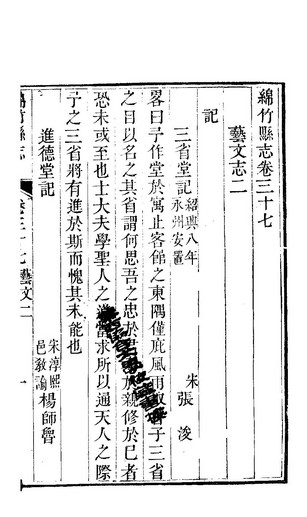 綿竹縣志卷三十七
藝文志二
記
三省堂記 紹興八年永州安置
宋 張浚
畧曰予作堂於寓止客館之東隅僅庇風雨取曾子三省
之目以名之其省謂何思吾之忠於君孝於親修於已者
恐未或至也士大夫學聖人之道當求所以通天人之際
予之三省將有進於斯而愧其未能也
進德堂記
宋淳熙邑教諭 楊師魯
綿竹縣志
卷三十七藝文二
一